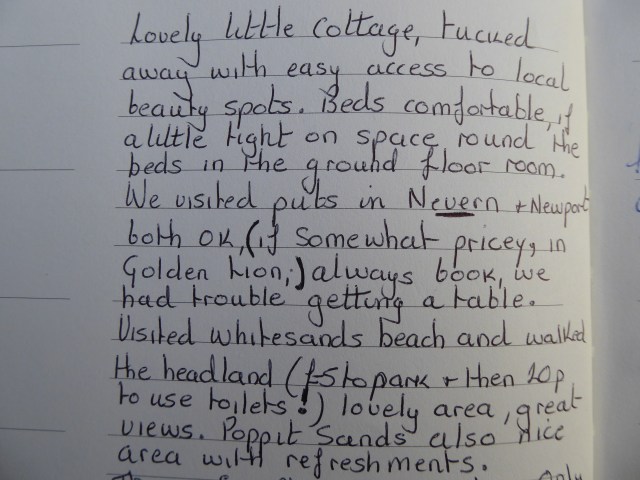 Lovely little cottage, tucked
away with easy access to local
beauty spots. Beds comfortable, if
a little tight on space round the
beds in the ground floor room.
We visited pubs in Nevern + Newport
both OK, (if somewhat pricey, in
Golden Lion;) always book, we
had trouble getting a table.
Visited whitesands beach and walked
the headland (£5 to park + then 20p
to use toilets!) lovely area, great
views. Poppit Sands also nice
area with refreshments.
Only